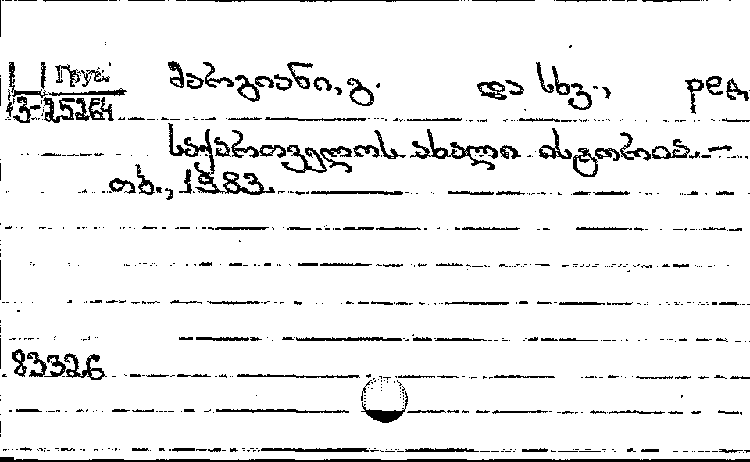 Груз. მარგიანი, გ. და სხვ., ред.
3-25264
საქართველოს ახალი ისტორია.–
თბ., 1983.
83326